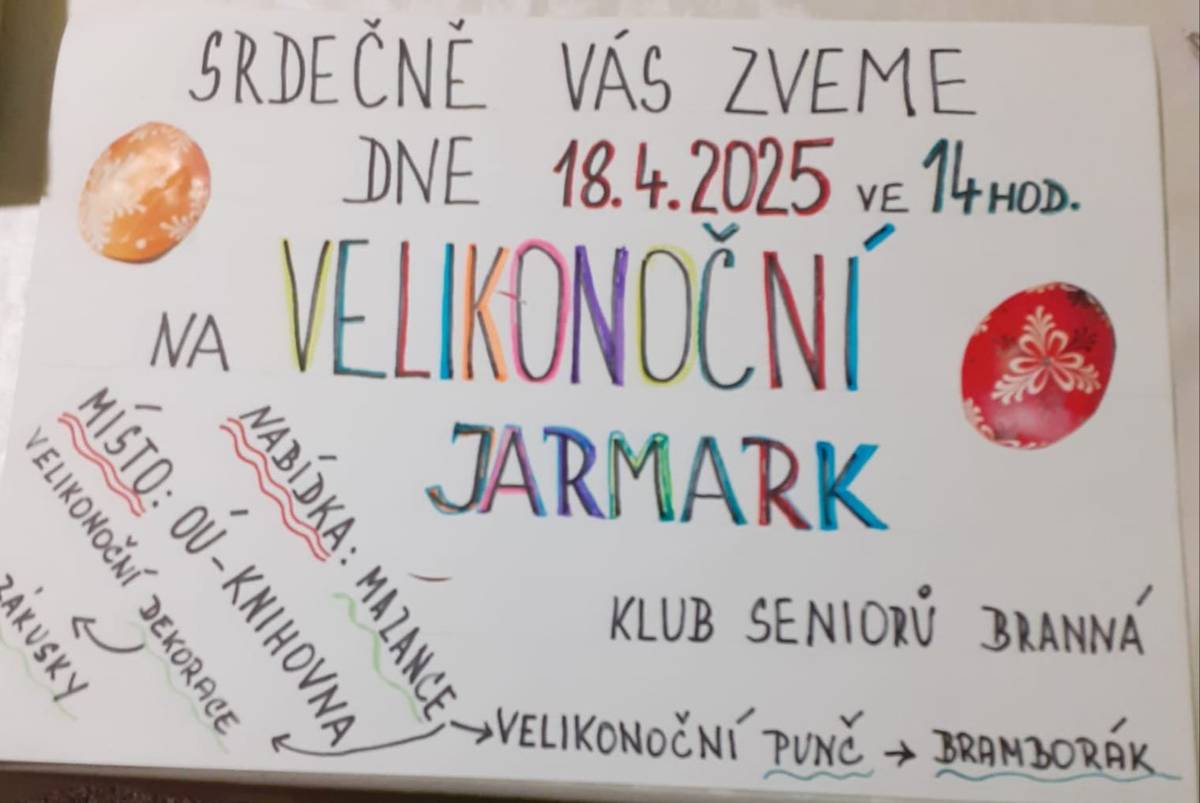 SRDEČNĚ VÁS ZVEME
DNE 18.4.2025 VE 14 HOD.
NA VELIKONOČNÍ
JARMARK
MÍSTO: OÚ-KNIHOVNA
NABÍDKA: MAZANCE
VELIKONOČNÍ DEKORACE
ZÁKUSKY
→ VELIKONOČNÍ PUNČ → BRAMBORÁK
KLUB SENIORŮ BRANNÁ